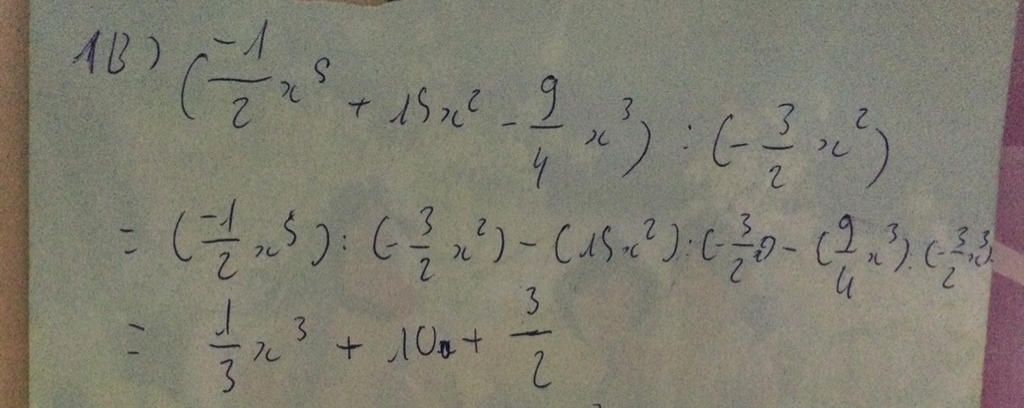 1B) (-1/2 x⁵ + 15x² - 9/4 x³) : (-3/2 x²)
= (-1/2 x⁵) : (-3/2 x²) - (15x²) : (-3/2 x²) - (9/4 x³) : (-3/2 x³)
= 1/3 x³ + 10 + 3/2